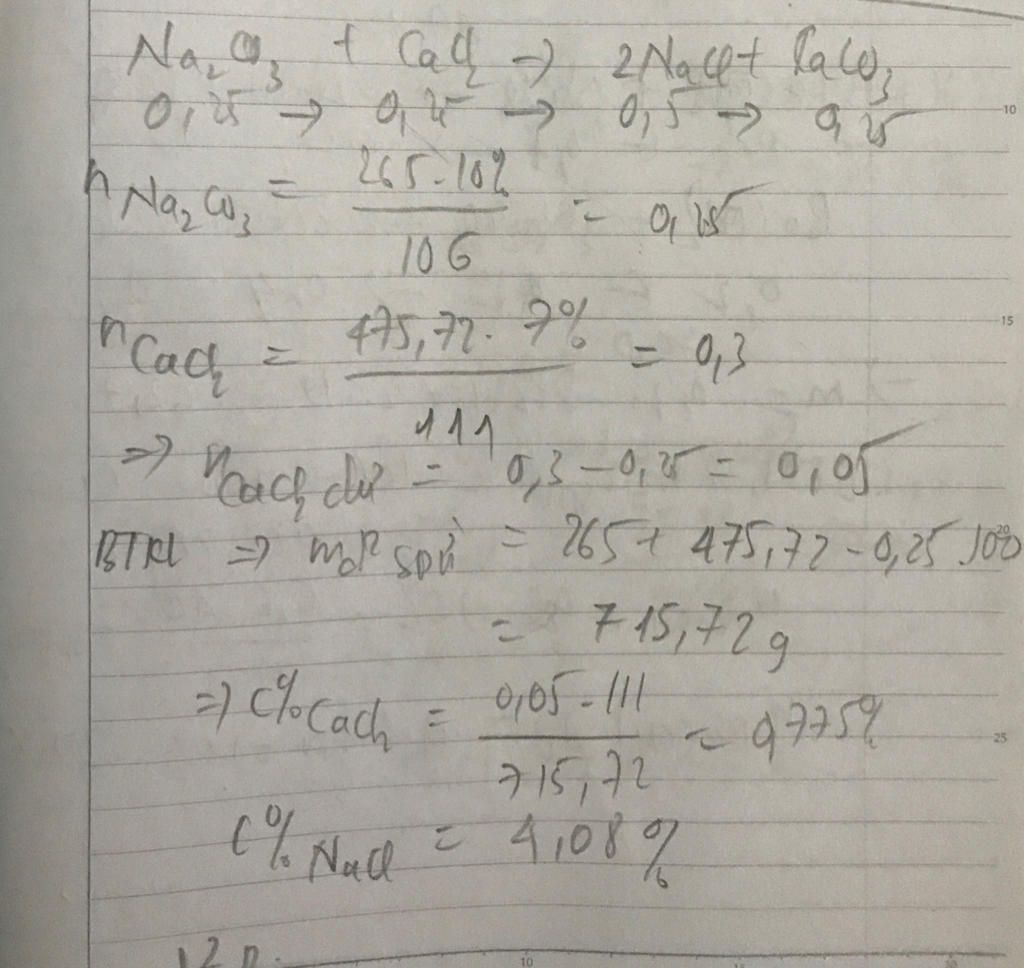 Na₂CO₃ + CaCl₂ → 2NaCl + CaCO₃
0,25 → 0,25 → 0,5 → 0,25
nNa₂CO₃ = 265.10% / 106 = 0,25
nCaCl₂ = 475,72. 7% / 111 = 0,3
⇒ nCaCl₂ dư = 0,3 - 0,25 = 0,05
BTKL ⇒ mdd spứ = 265 + 475,72 - 0,25.100
= 715,72g
⇒ C% CaCl₂ = 0,05.111 / 715,72 = 0,775%
C% NaCl = 4,08%